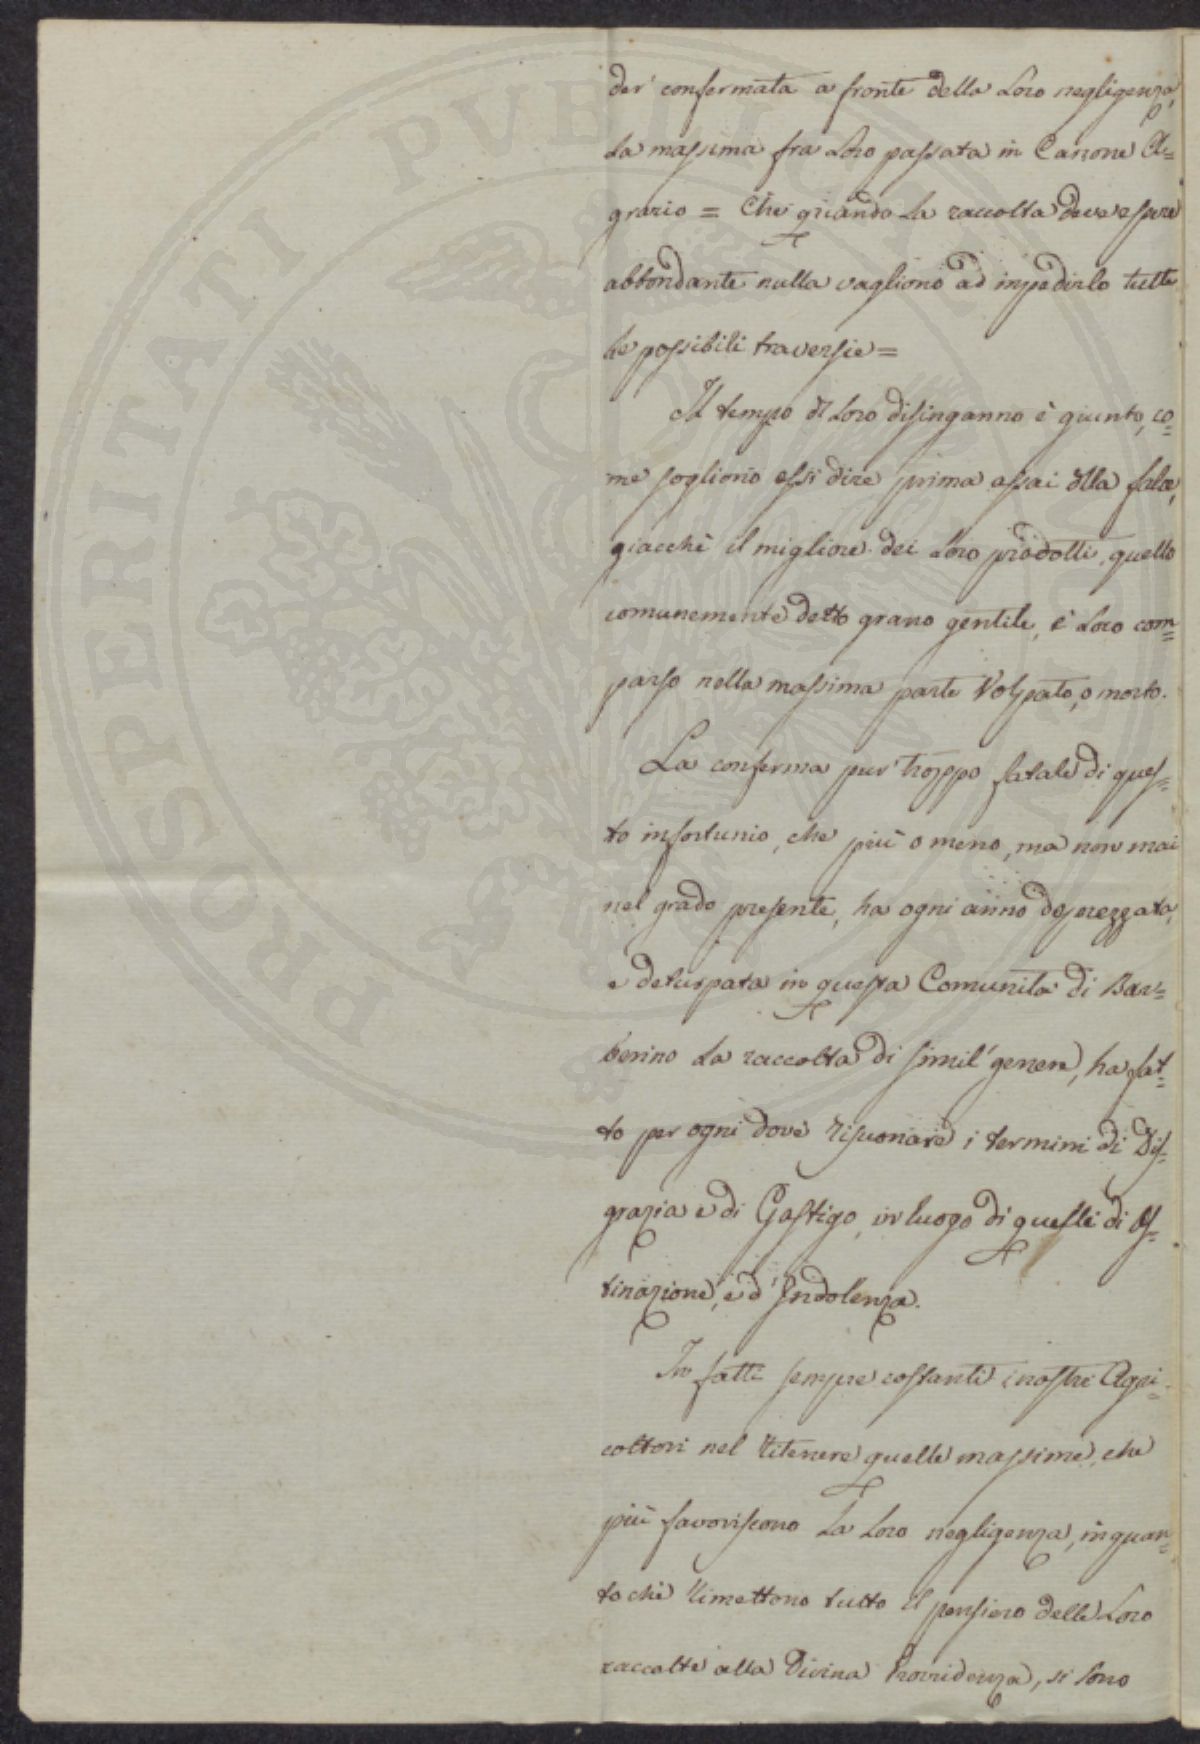 der confermata a fronte della Loro negligenza,
La massima fra Loro passata in Canone A=
grario = Che quando La raccolta deve essere
abbondante nulla vagliono ad impedirlo tutte
le possibili traversie =
Il tempo di Loro disinganno è giunto, co=
me sogliono essi dire prima assai della falce,
giacchè il migliore dei Loro prodotti, quello
comunemente detto grano gentile, è Loro com=
parso nella massima parte Volpato, o morto.
La conferma pur troppo fatale di ques=
to infortunio, che più o meno, ma non mai
nel grado presente, ha ogni anno deprezzata,
e deturpata in questa Comunità di Bar=
berino La raccolta di simil' genere, ha fat=
to per ogni dove risuonare i termini di Dis=
grazia e di Gastigo, in luogo di quelli di Os=
tinazione, e d'Indolenza.
In fatti sempre costanti i nostri Agri=
coltori nel ritenere quelle massime, che
più favoriscono La Loro negligenza, in quan=
to che rimettono tutto il pensiero delle Loro
raccolte alla Divina Provvidenza, si sono
PROSPERITATI PUBLICAE